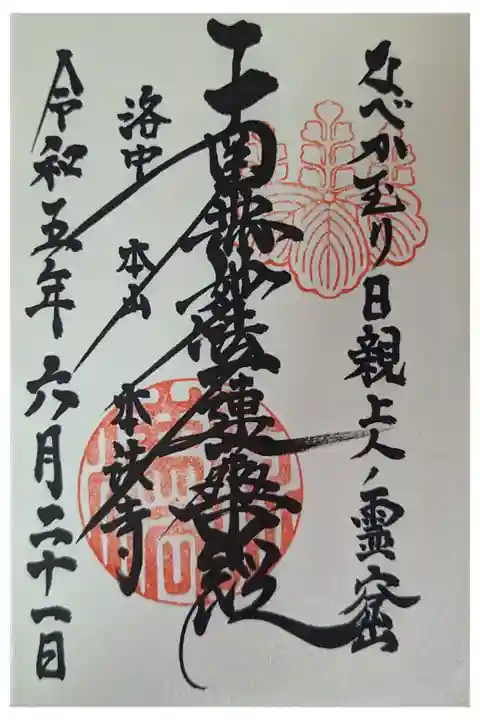 なべかむり日親上人ノ霊窟
南無妙法蓮華経
洛中
本山
本法寺
令和五年六月二十一日